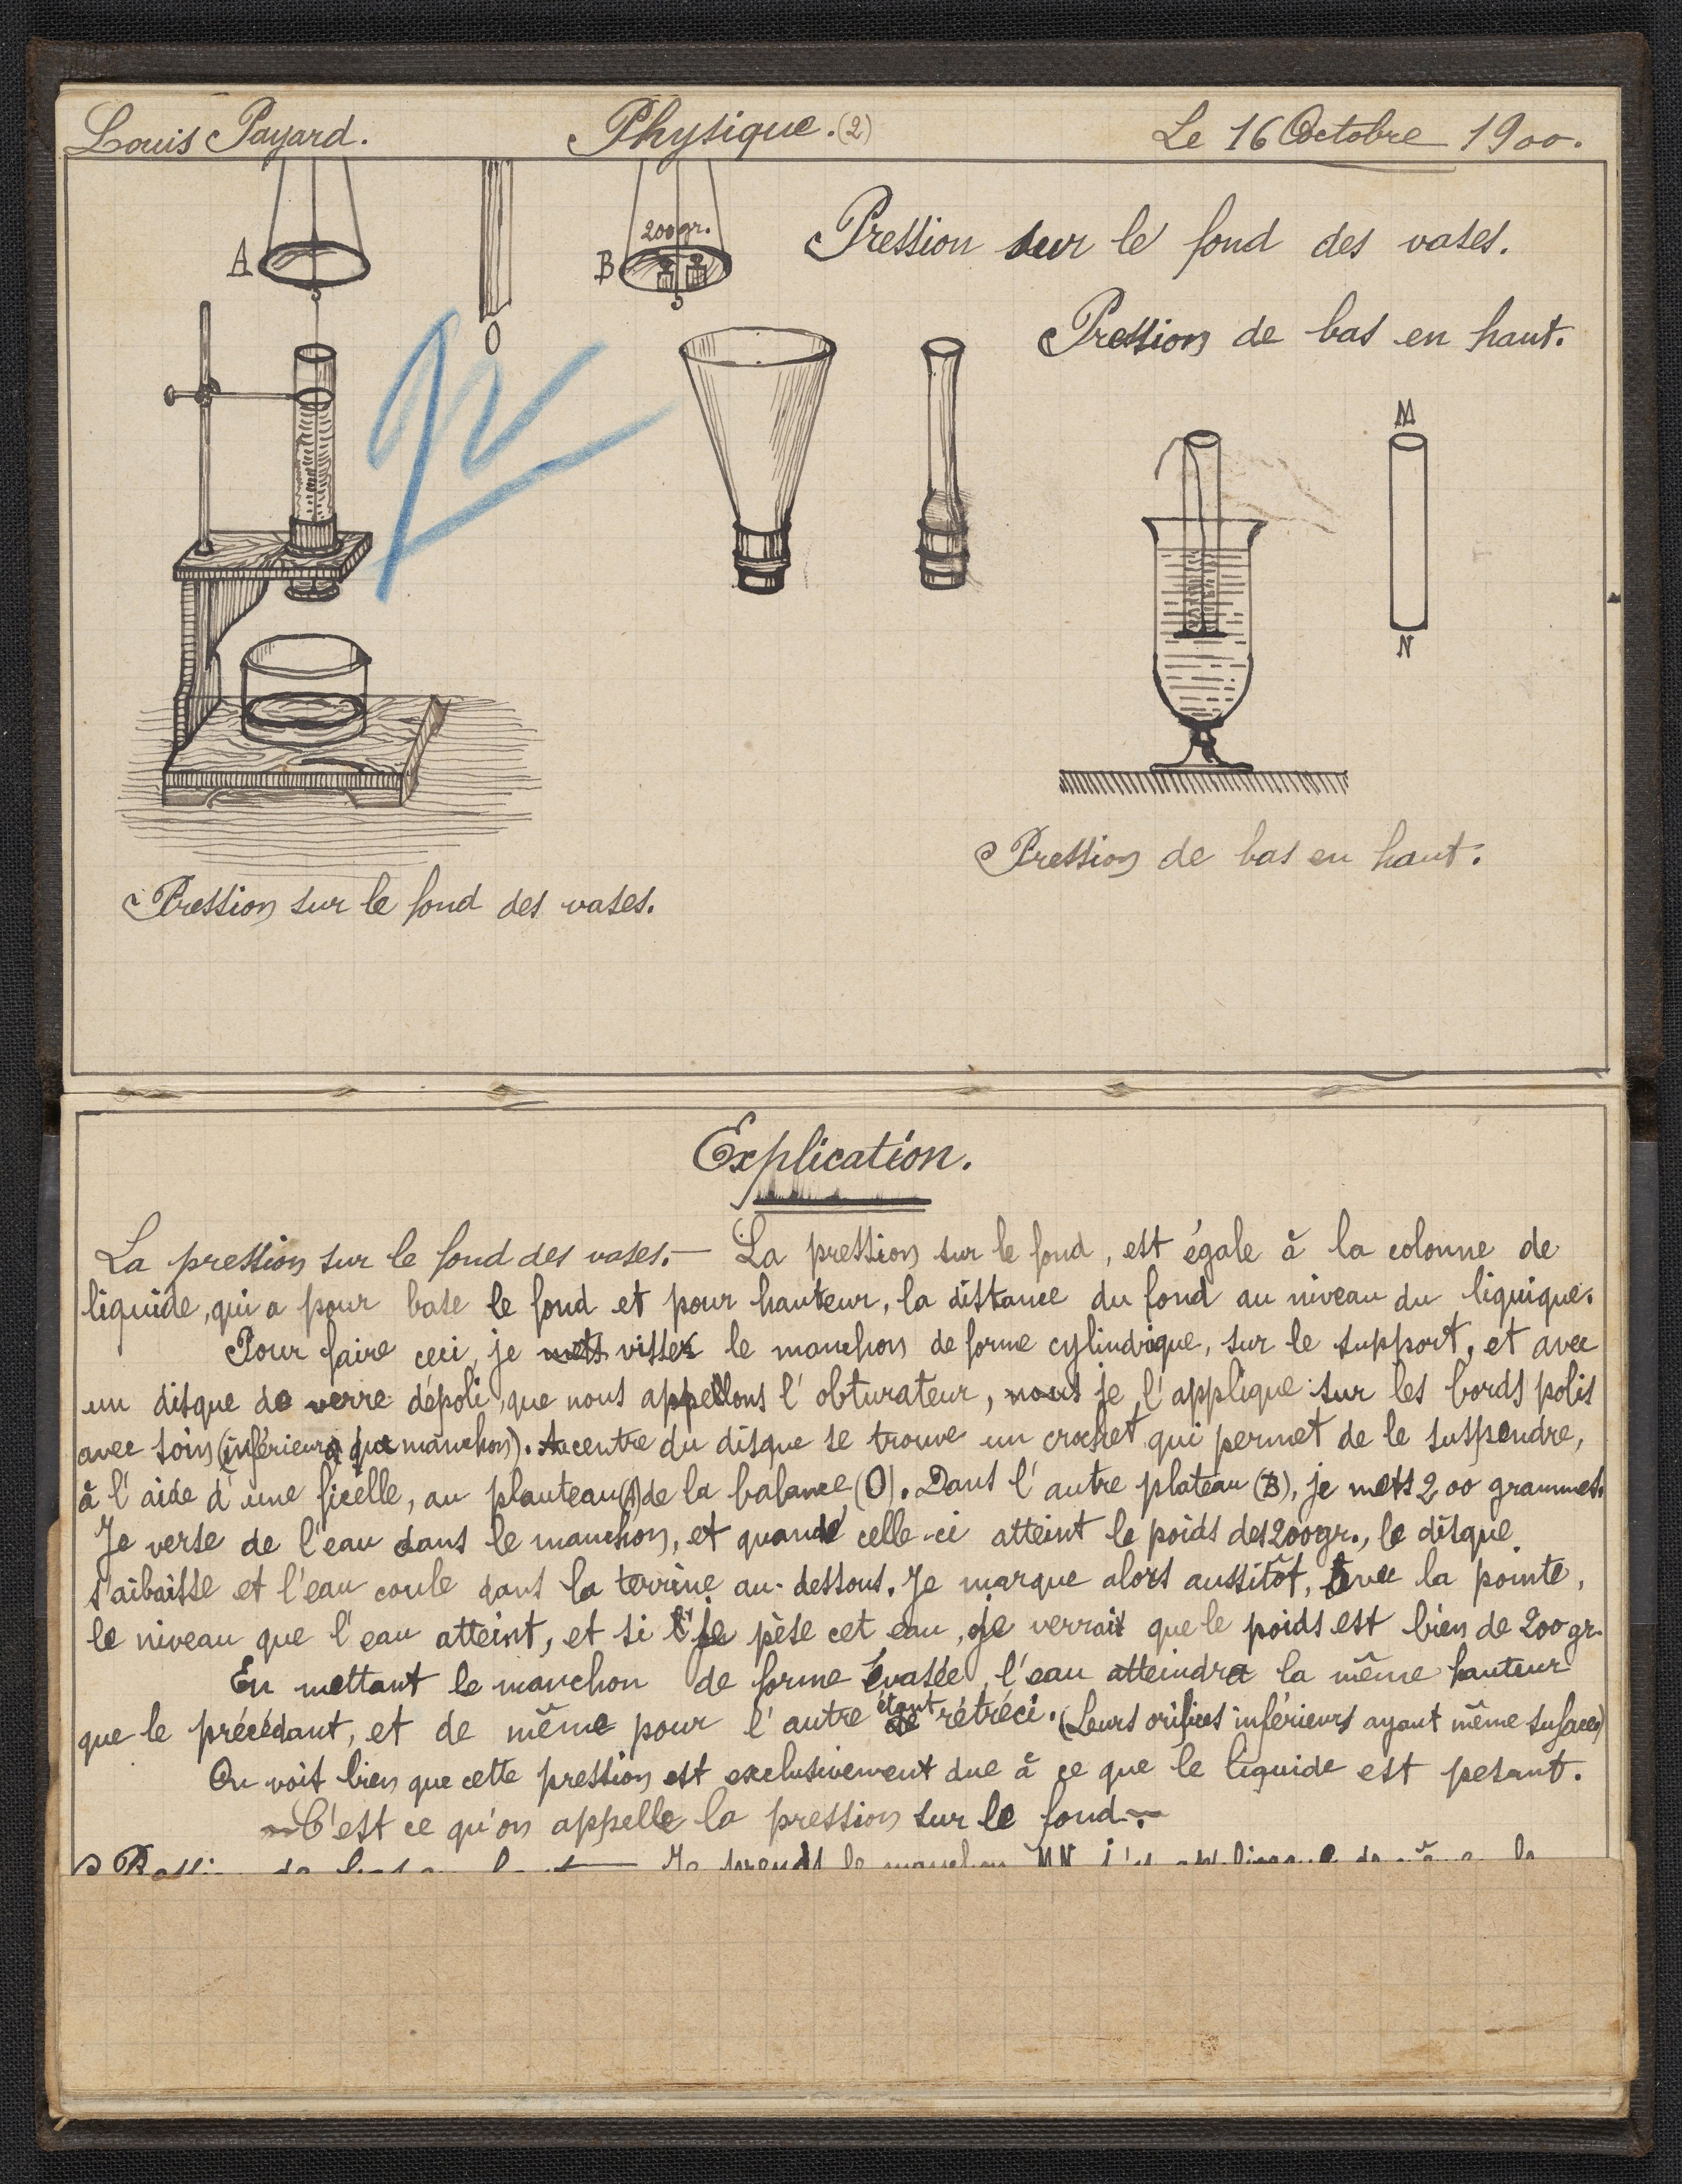 Louis Payard. Physique. (2) Le 16 Octobre 1900.
Pression sur le fond des vases.
Pression de bas en haut.
A
200gr.
B
O
M
N
Pression de bas en haut.
Pression sur le fond des vases.
Explication.
La pression sur le fond des vases. — La pression sur le fond, est égale à la colonne de
liquide, qui a pour base le fond et pour hauteur, la distance du fond au niveau du liquique.
Pour faire ceci, je mets visser le manchon de forme cylindrique, sur le support, et avec
un disque de verre dépoli, que nous appellons l'obturateur, nous je l'applique sur les bords polis
avec soin (inférieurs du manchon). Au centre du disque se trouve un crochet qui permet de le suspendre,
à l'aide d'une ficelle, au plauteau (A) de la balance (O). Dans l'autre plateau (B), je mets 200 grammes.
Je verse de l'eau dans le manchon, et quand celle-ci atteint le poids des 200gr., le disque
s'aibaisse et l'eau coule dans la terrine au-dessous. Je marque alors aussitôt, avec la pointe,
le niveau que l'eau atteint, et si je pèse cet eau, je verrais que le poids est bien de 200 gr.
En mettant le manchon de forme évasée, l'eau atteindra la même hauteur
que le précédant, et de même pour l'autre étant rétréci. (Leurs orifices inférieurs ayant même sufaces)
On voit bien que cette pression est exclusivement due à ce que le liquide est pesant.
C'est ce qu'on appelle la pression sur le fond.